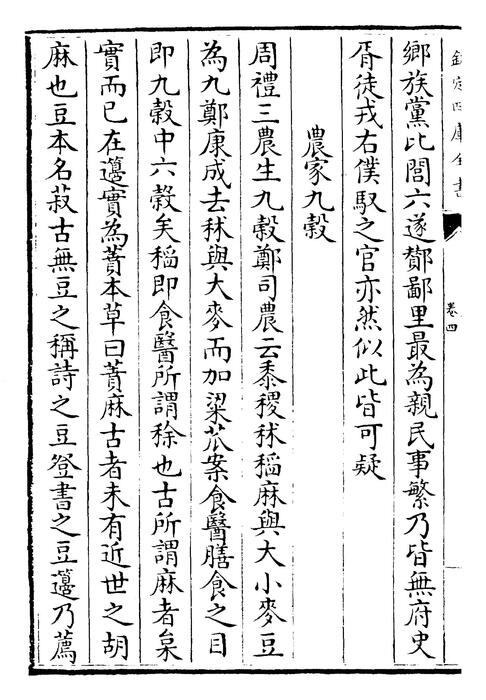 欽定四庫全書
卷四
鄉族黨比閭六遂酇鄙里最為親民事繁乃皆無府史
胥徒戎右僕馭之官亦然似此皆可疑
農家九穀
周禮三農生九穀鄭司農云黍稷秫稻麻與大小麥豆
為九鄭康成去秫與大麥而加粱苽案食醫膳食之目
即九穀中六穀矣稻即食醫所謂稌也古所謂麻者枲
實而已在籩實為蕡本草曰蕡麻古者未有近世之胡
麻也豆本名菽古無豆之稱詩之豆豋書之豆籩乃薦